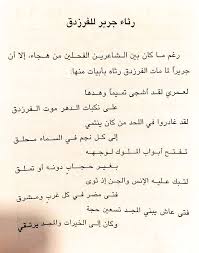 رثاء جرير للفرزدق
رغم ما كان بين الشاعرين الفحلين من هجاء، إلا أن
جريراً لما مات الفرزدق رثاه بأبيات منها:
لعمري لقد أشجى تميماً وهدها
على نكبات الدهر موت الفرزدق
لقد غادروا في اللحد من كان ينتمي
إلى كل نجم في السماء محلق
تفتح أبواب الملوك لوجهه
بغير حجاب دونه أو تملق
لتبك عليه الإنس والجن إذ ثوى
فتى مضر في كل غرب ومشرق
فتى عاش يبني المجد تسعين حجة
وكان إلى الخيرات والمجد يرتقي